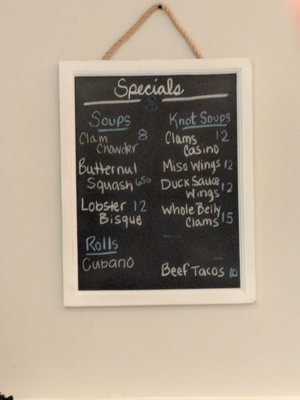 Specials
Soups
Clam 8
Chowder
Butternut
Squash 6.50
Lobster 12
Bisque
Rolls
Cubano
Knot Soups
Clams 12
Casino
Miso Wings 12
Duck Sauce
Wings 12
Whole Belly
Clams 15
Beef Tacos 10